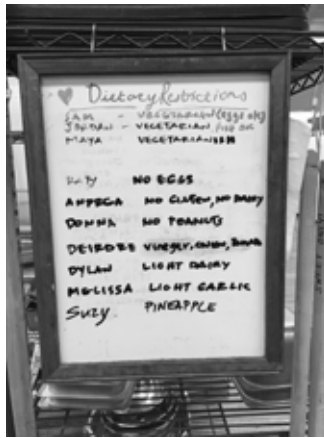 Dietary Restrictions
SAM - VEGETARIAN (eggs ok)
JORDAN - VEGETARIAN
MAYA VEGETARIAN
NO EGGS
ANDREA NO GLUTEN, NO DAIRY
DONNA NO PEANUTS
DEIRDRE vinegar, onion,
DYLAN LIGHT DAIRY
MELISSA LIGHT GARLIC
Suzy PINEAPPLE